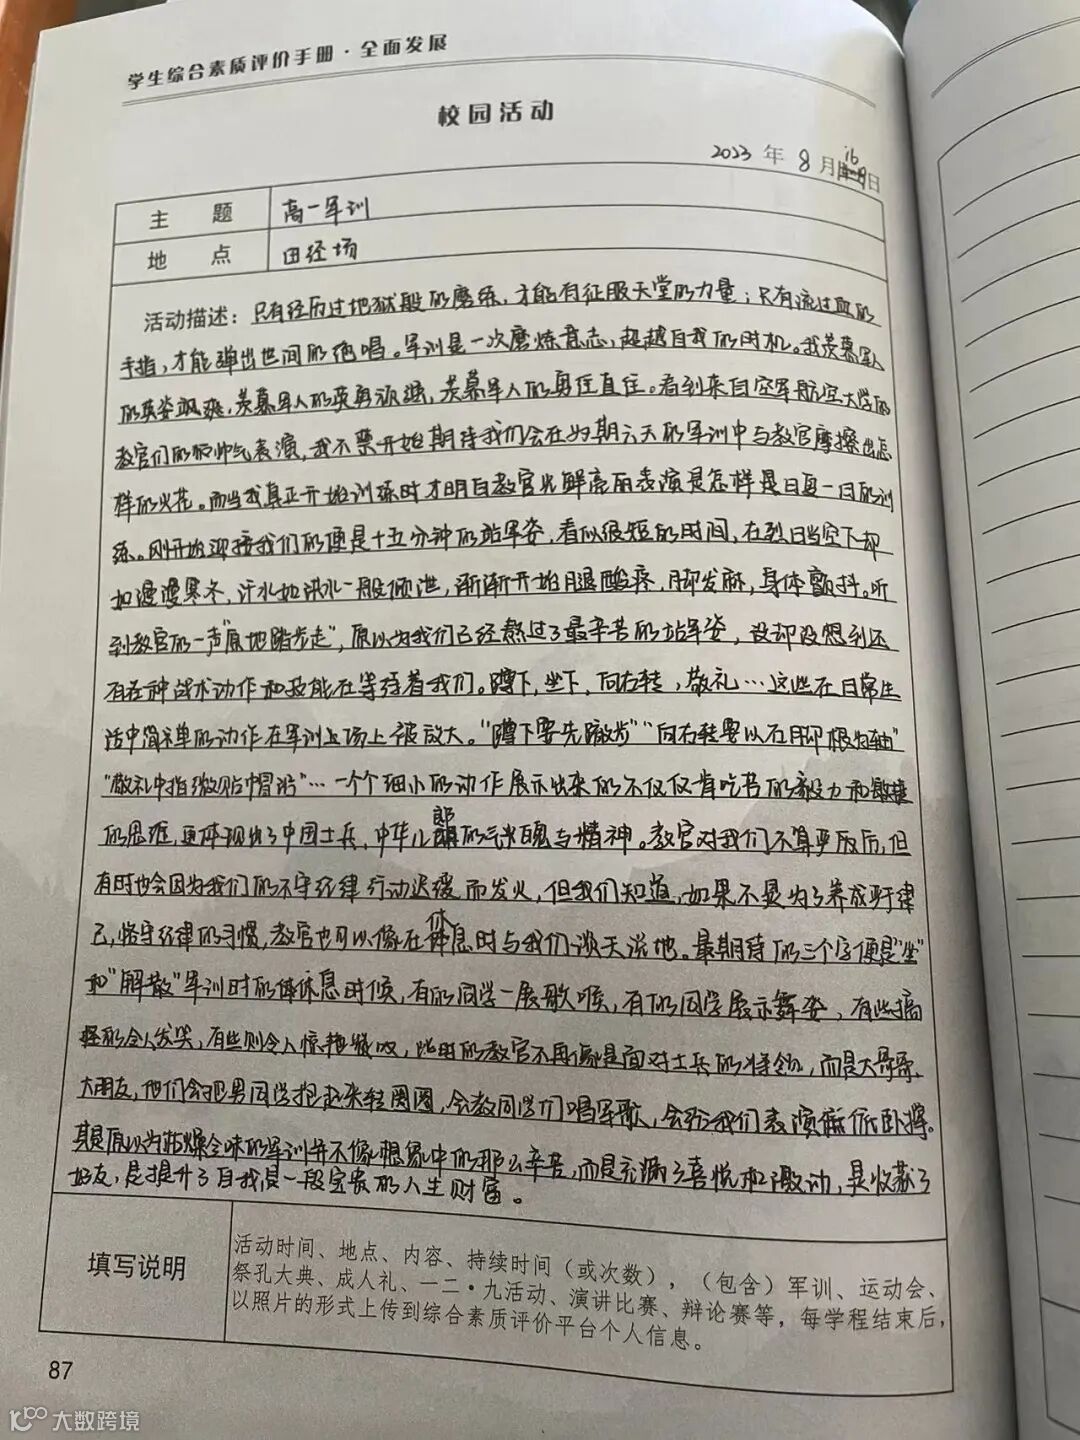 学生综合素质评价手册·全面发展
校园活动
2023 年 8 月 16 日
主 题 高一军训
地 点 田径场
活动描述：只有经历过地狱般的磨练，才能有征服天堂的力量；只有流过血的
手指，才能弹出世间的绝唱。军训是一次磨炼意志，超越自我的时机。我羡慕军人
的英姿飒爽，羡慕军人的英勇顽强，羡慕军人的勇往直往。看到来自空军航空大学的
教官们的帅气表演，我不禁开始期待我们会在为期六天的军训中与教官摩擦出怎
样的火花。而当我真正开始训练时才明白教官光鲜亮丽表演是怎样是日复一日的训
练。刚开始迎接我们的便是十五分钟的站军姿，看似很短的时间，在烈日当空下却
如漫漫寒冬，汗水如洪水一般倾泄，渐渐开始腿酸疼，脚发麻，身体颤抖。听
到教官的一声"原地踏步走"，原以为我们已经熬过了最辛苦的站军姿，没却没想到还
有各种战术动作和技能在等待着我们。蹲下，坐下，向右转，敬礼…这些在日常生
活中简单的动作在军训场上被放大。"蹲下要先撤步""向右转要以右脚根为轴"
"敬礼中指微贴帽沿"…一个个细小的动作展示出来的不仅仅有吃苦的毅力和敏捷
的思维，更体现出了中国士兵，中华儿郎的气魄与精神。教官对我们不算严厉，但
有时也会因为我们的不守纪律行动迟缓而发火，但我们知道，如果不是为了养成律
己，恪守纪律的习惯，教官也可以像在休息时与我们谈天说地。最期待的三个字便是"坐"
和"解散"军训时的休息时候，有的同学一展歌喉，有的同学展示舞姿，有些搞
怪的令人发笑，有些则令人惊艳，此时的教官不再像是面对士兵的将领，而是大哥哥，
大朋友，他们会把男同学抱起来转圈圈，会教同学们唱军歌，会给我们表演俯卧撑。
原以为枯燥乏味的军训并不像想象中的那么辛苦，而是充满了喜悦和激动，是收获了
好友，是提升了自我是一段宝贵的人生财富。
填写说明
活动时间、地点、内容、持续时间（或次数），（包含）军训、运动会、
祭孔大典、成人礼、一二·九活动、演讲比赛、辩论赛等，每学程结束后，
以照片的形式上传到综合素质评价平台个人信息。
87
大数跨境